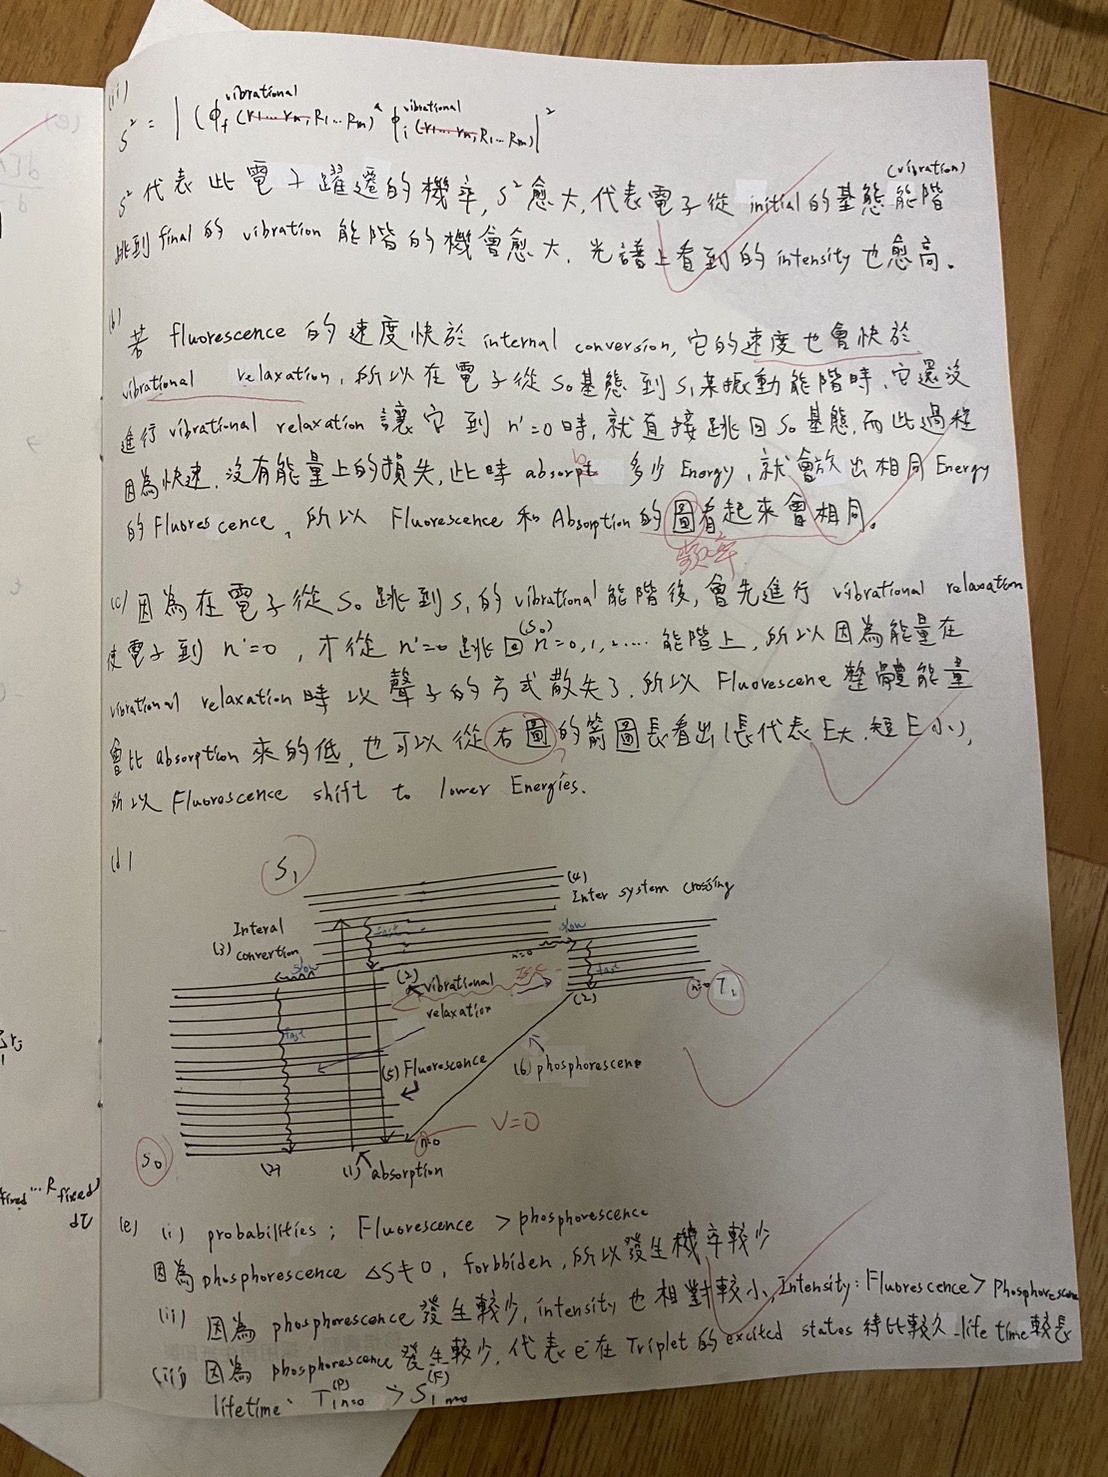 (ii)
vibrational vibrational
S² = | (ϕf (r1...rn, R1...Rm)* ϕi (r1...rn, R1...Rm) |²
(vibration)
S²代表此電子躍遷的機率,S²愈大,代表電子從initial的基態能階
跳到final的vibration能階的機會愈大,光譜上看到的intensity也愈高。
(b)
若fluorescence的速度快於internal conversion,它的速度也會快於
vibrational relaxation,所以在電子從S0基態到S1某振動能階時,它還沒
進行vibrational relaxation讓它到n'=0時,就直接跳回S0基態,而此過程
因為快速,沒有能量上的損失,此時absorb多少Energy,就會放出相同Energy
的Fluorescence,所以Fluorescence和Absorption的圖看起來會相同。
頻率
(c)因為在電子從S0跳到S1的vibrational能階後,會先進行vibrational relaxation
使電子到n'=0,才從n'=0跳回(S0)n=0,1,2.....能階上,所以因為能量在
vibrational relaxation時以聲子的方式散失了,所以Fluorescene整體能量
會比absorption來的低,也可以從右圖的箭圖長看出(長代表E大,短E小),
所以Fluorescence shift to lower Energies.
(d)
S1
(4)
Inter system crossing
Interal
(3) convertion
fast
slow
n=0
slow
fast
(2)
vibrational
relaxation
ISC
n=0
T1
(2)
fast
(5) Fluorescence
(6) phosphorescene
n=0
V=0
S0
(2)
(1) absorption
(e) (i) probabilities; Fluorescence > phosphorescence
因為phosphorescence ΔS≠0, forbbiden,所以發生機率較少
(ii) 因為phosphorescence發生較少,intensity也相對較小,Intensity: Fluorescence > Phosphorescence
(iii) 因為phosphorescence發生較少,代表e⁻在Triplet的excited states待比較久.life time較長
lifetime: T1 n=0 (P) > S1 n=0 (F)
fixed...Rfixed)
dτ